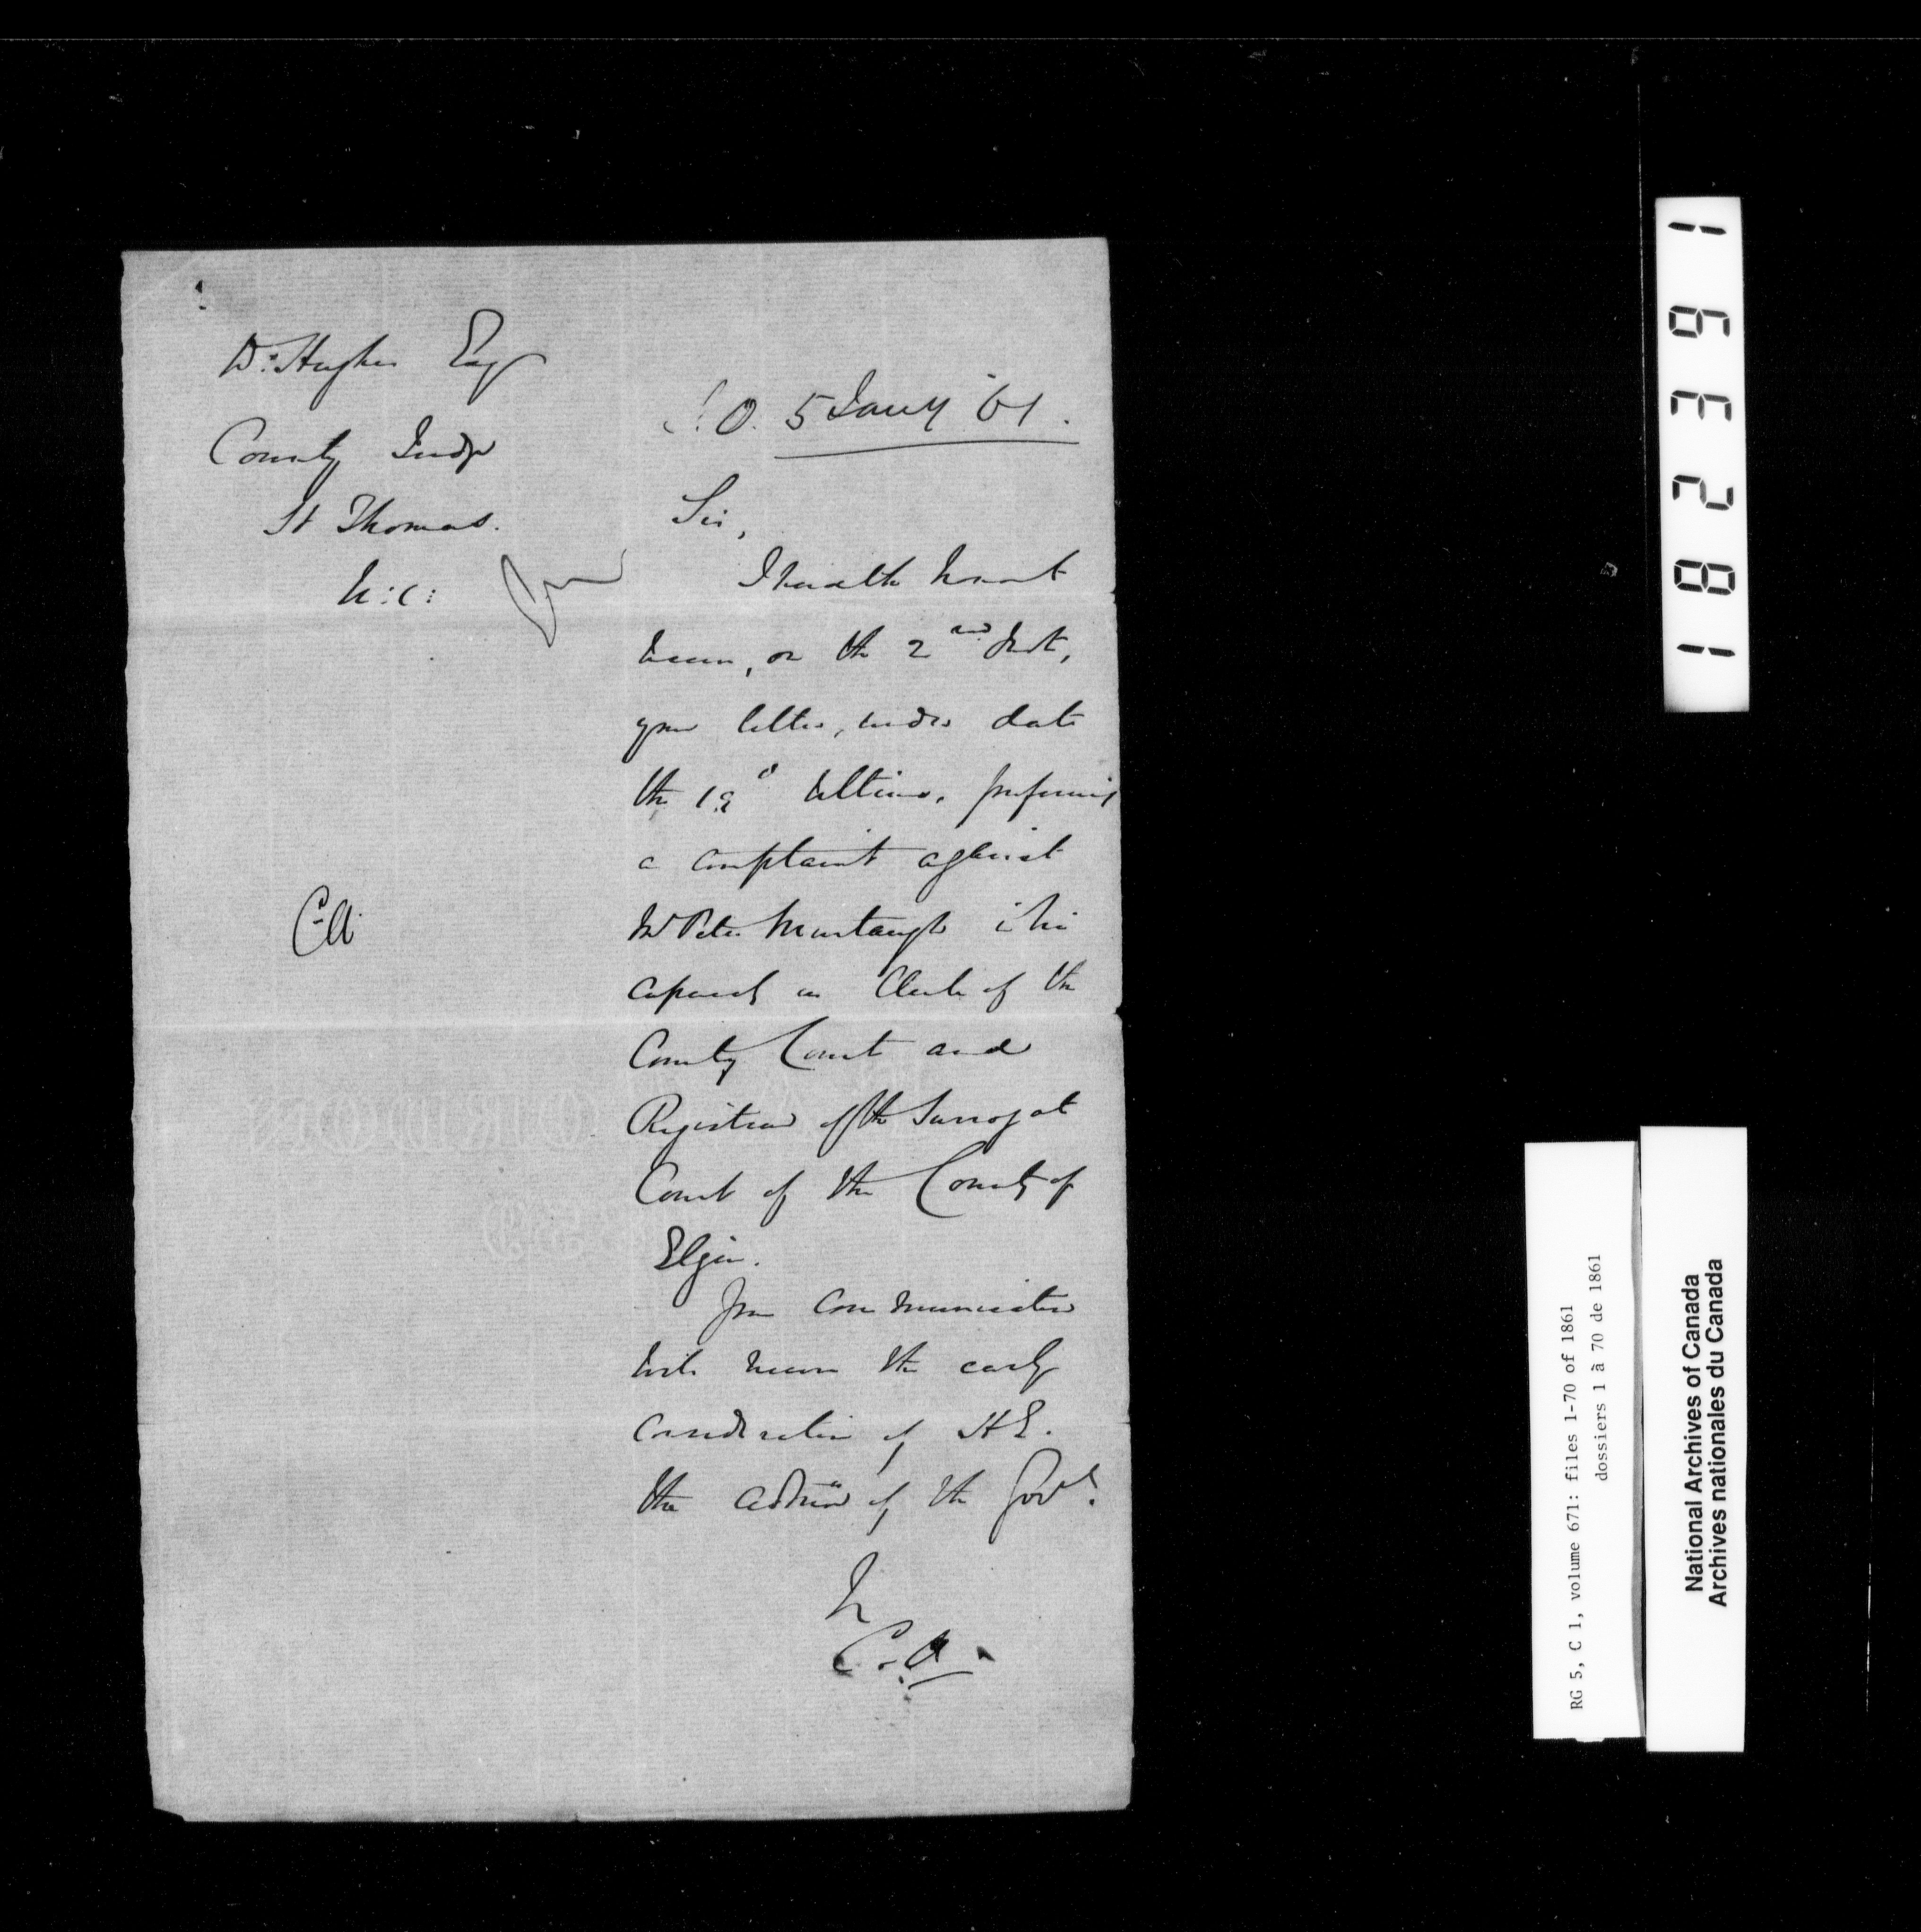 D. Hughes Esq
County Judge
St Thomas.
U:C:
S.O. 5 Jany '61.
Sir,
I have the honor to
receive, on the 2nd Inst,
your letter, under date
the 19th Ultimo, preferring
a complaint against
Mr Peter Murtaugh in his
capacity as Clerk of the
County Court and
Registrar of the Surrogate
Court of the County of
Elgin.
Your Communication
will receive the early
consideration of H.E.
the Admr of the Govt.
C.A.
C.A.
181
2
3
9
1
National Archives of Canada
Archives nationales du Canada
RG 5, C 1, volume 671: files 1-70 of 1861
dossiers 1 à 70 de 1861